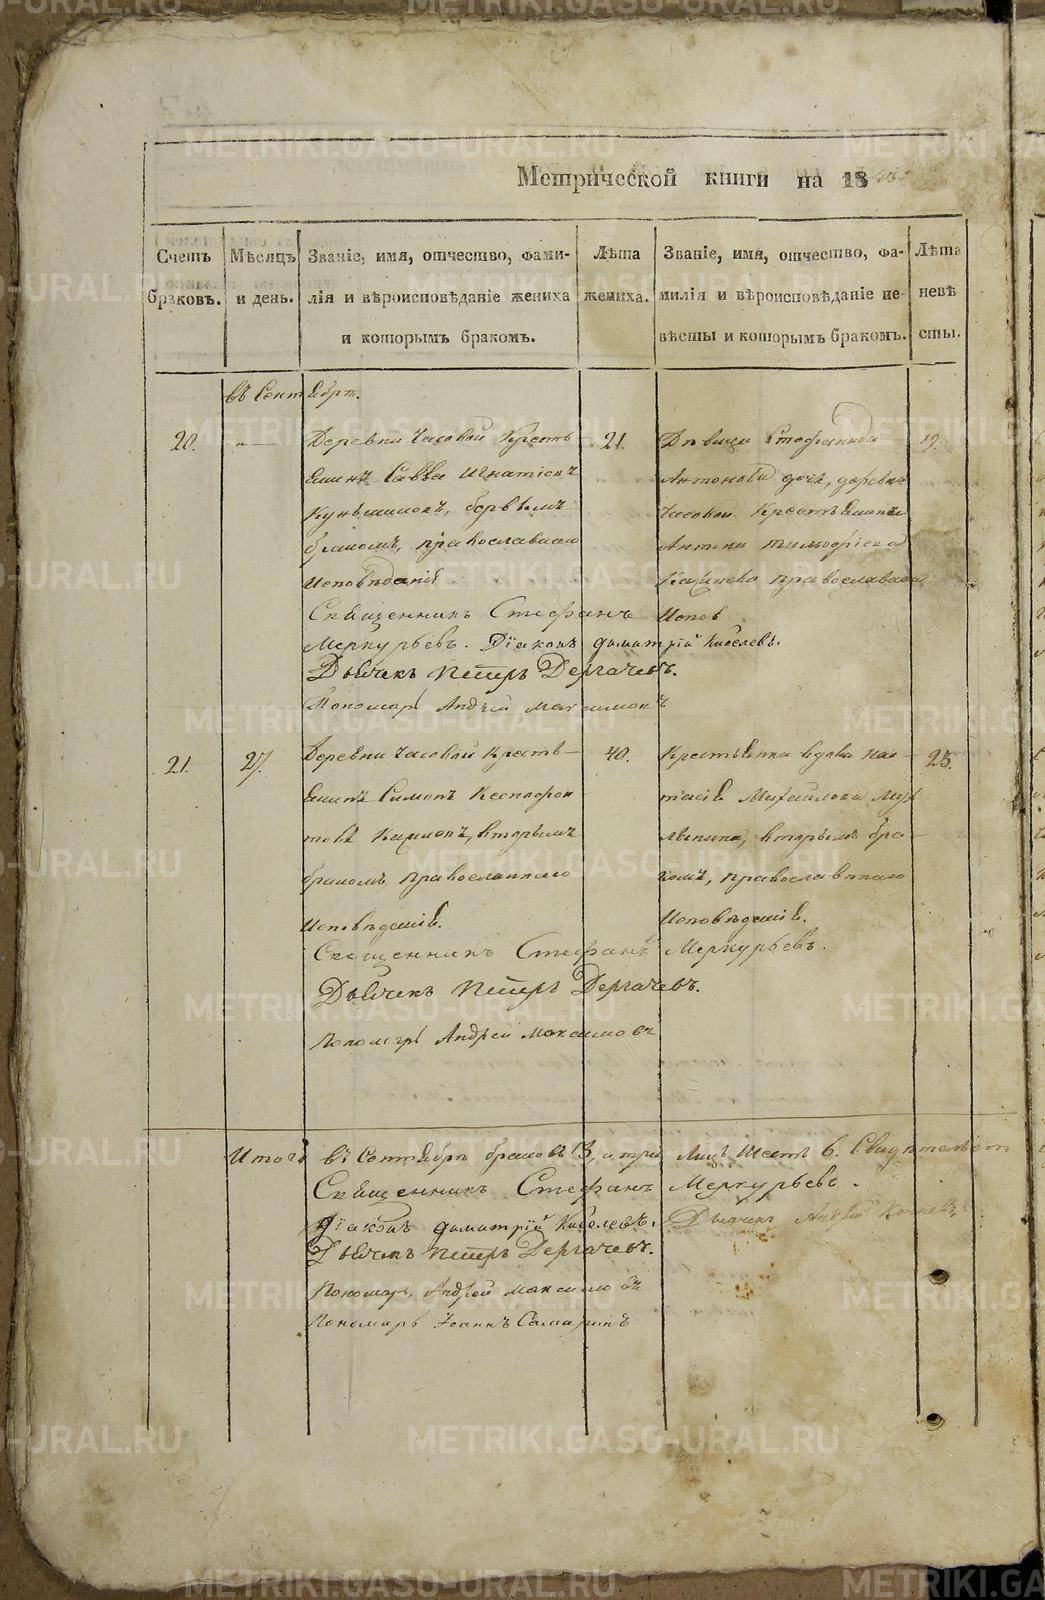 Метрической книги на 18
Счетъ браковъ.
Мѣсяцъ и день.
Званіе, имя, отчество, фами-
лія и вѣроисповѣданіе жениха
и которымъ бракомъ.
Лѣта
жениха.
Званіе, имя, отчество, фа-
милія и вѣроисповѣданіе не-
вѣсты и которымъ бракомъ.
Лѣта
невѣ
сты.
въ Сентябрѣ.
20.
Деревни Часовой Кресть
янинъ Савва Игнатіевъ
первымъ
бракомъ, православнаго
Исповѣданія
21.
Дѣвица Стефанида
Антонова дочь, деревни
Часовой Крестьянина
Антона Тимофеева
православнаго
Испов
19.
Священникъ Стефанъ
Меркурьевъ. Діаконъ Димитрій Киселевъ.
Дьячекъ Петръ Дергачевъ.
Пономарь Андрей Максимовъ
21.
27.
Деревни Часовой Кресть-
янинъ Симонъ Ксенофон
товъ вторымъ
бракомъ православнаго
Исповѣданія.
40.
Крестьянка вдова Нас-
тасія Михайлова
вторымъ бра-
комъ, православнаго
Исповѣданія.
25.
Священникъ Стефанъ Меркурьевъ.
Дьячекъ Петръ Дергачевъ.
Пономарь Андрей Максимовъ
Итого въ Сентябрѣ браковъ 3, три Лицъ шесть 6. Свидѣтельст
Священникъ Стефанъ Меркурьевъ.
Діаконъ Димитрій Киселевъ. Дьячекъ Андрей
Дьячекъ Петръ Дергачевъ.
Пономарь Андрей Максимовъ
Пономарь Іоаннъ Самаринъ
METRIKI.GASO-URAL.RU